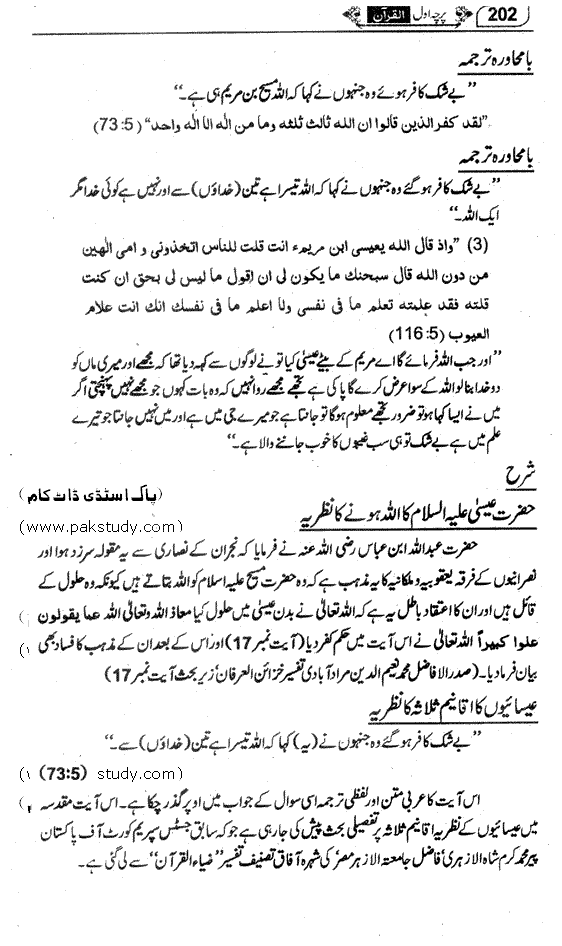 202 پرچہ اول القرآن
بامحاورہ ترجمہ
’’بے شک کافر ہوئے وہ جنہوں نے کہا کہ اللہ مسیح بن مریم ہی ہے۔‘‘
"لقد کفر الذین قالوا ان اللہ ثالث ثلثه وما من الٰه الا الٰه واحد" (73:5)
بامحاورہ ترجمہ
’’بے شک کافر ہو گئے وہ جنہوں نے کہا کہ اللہ تیسرا ہے تین (خداؤں) سے اور نہیں ہے کوئی خدا مگر
ایک اللہ۔‘‘
(3) "واذ قال اللہ یعیسی ابن مریمء انت قلت للناس اتخذونی و امی الٰھین
من دون اللہ قال سبحنك ما یکون لی ان اقول ما لیس لی بحق ان کنت
قلته فقد علمته تعلم ما فی نفسی ولا اعلم ما فی نفسك انك انت علام
العیوب (116:5)
’’اور جب اللہ فرمائے گا اے مریم کے بیٹے عیسیٰ کیا تو نے لوگوں سے کہہ دیا تھا کہ مجھے اور میری ماں کو
دو خدا بنا لو اللہ کے سوا عرض کرے گا پاکی ہے تجھے مجھے روا نہیں کہ وہ بات کہوں جو مجھے نہیں پہنچتی اگر
میں نے ایسا کہا ہو تو ضرور تجھے معلوم ہوگا تو جانتا ہے جو میرے جی میں ہے اور میں نہیں جانتا جو تیرے
علم میں ہے بے شک تو ہی سب غیبوں کا خوب جاننے والا ہے۔‘‘
شرح
(پاک اسٹڈی ڈاٹ کام)
حضرت عیسیٰ علیہ السلام کا اللہ ہونے کا نظریہ
(www.pakstudy.com)
حضرت عبداللہ ابن عباس رضی اللہ عنہ نے فرمایا کہ نجران کے نصاریٰ سے یہ مقولہ سرزد ہوا اور
نصرانیوں کے فرقہ یعقوبیہ و ملکانیہ کا یہ مذہب ہے کہ وہ حضرت مسیح علیہ السلام کو اللہ بتاتے ہیں کیونکہ وہ حلول کے
قائل ہیں اور ان کا اعتقاد باطل یہ ہے کہ اللہ تعالیٰ نے بدن عیسیٰ میں حلول کیا معاذ اللہ وتعالیٰ اللہ عما یقولون
علوا کبیراً اللہ تعالیٰ نے اس آیت میں حکم کفر دیا (آیت نمبر 17) اور اس کے بعد ان کے مذہب کا فساد بھی
بیان فرما دیا۔ (صدر الافاضل محمد نعیم الدین مراد آبادی تفسیر خزائن العرفان زیر بحث آیت نمبر 17)
عیسائیوں کا اقانیم ثلاثہ کا نظریہ
’’بے شک کافر ہو گئے وہ جنہوں نے (یہ) کہا کہ اللہ تیسرا ہے تین (خداؤں) سے۔‘‘
(73:5) study.com)
اس آیت کا عربی متن اور لفظی ترجمہ اسی سوال کے جواب میں اوپر گذر چکا ہے۔ اس آیت مقدسہ
میں عیسائیوں کے نظریہ اقانیم ثلاثہ پر تفصیلی بحث پیش کی جا رہی ہے جو کہ سابق جسٹس سپریم کورٹ آف پاکستان
پیر محمد کرم شاہ الازہری فاضل جامعتہ الازہر مصر کی شہرہ آفاق تصنیف تفسیر ’’ضیاء القرآن‘‘ سے لی گئی ہے۔